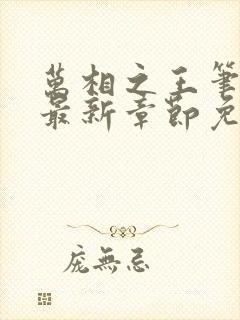 萬相之王筆
最新章節免
庞無忌